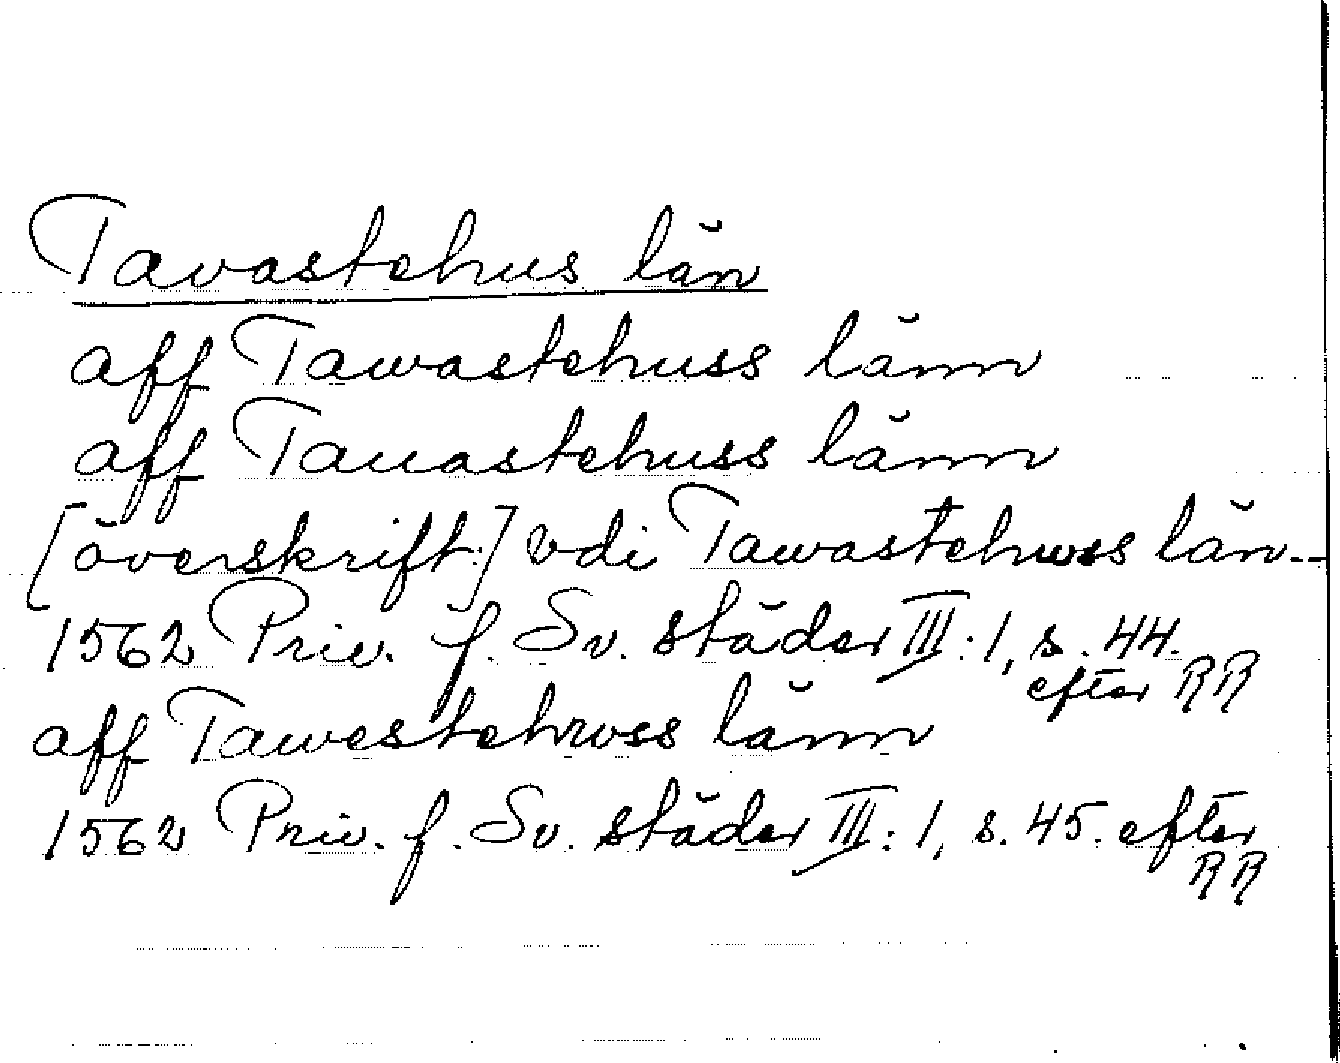 Tavastehus län
aff Tawastehuss länn
aff Tauastehuss länn
[överskrift:] vdi Tawastehwss län--
1562 Priv. f. Sv. städer III:1, s. 44.
efter RR
aff Tawestehwss länn
1562 Priv. f. Sv. städer III:1, s. 45. efter
RR